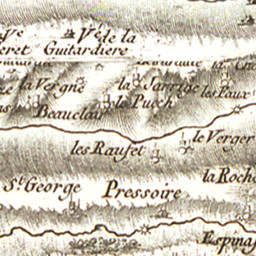 Ve
Ve de la
eret Guitardiere
la Vergne
la Jarrige
les Faux
le Puech
Beauclau
le Verger
les Rauset
la Roche
St. George
Pressoire
Espinas